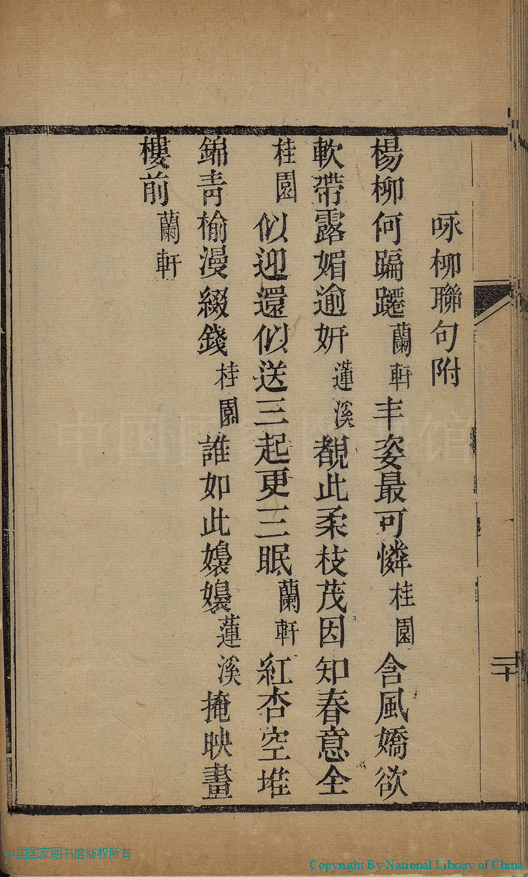 咏柳聯句附
楊柳何蹁躚蘭軒丰姿最可憐桂園含風嬌欲
軟帶露媚逾妍蓮溪覩此柔枝茂因知春意全
桂園似迎還似送三起更三眠蘭軒紅杏空堆
錦青榆漫綴錢桂園誰如此嬝嬝蓮溪掩映畫
樓前蘭軒
二十
中国国家图书馆
中国国家图书馆版权所有
Copyright By National Library of China